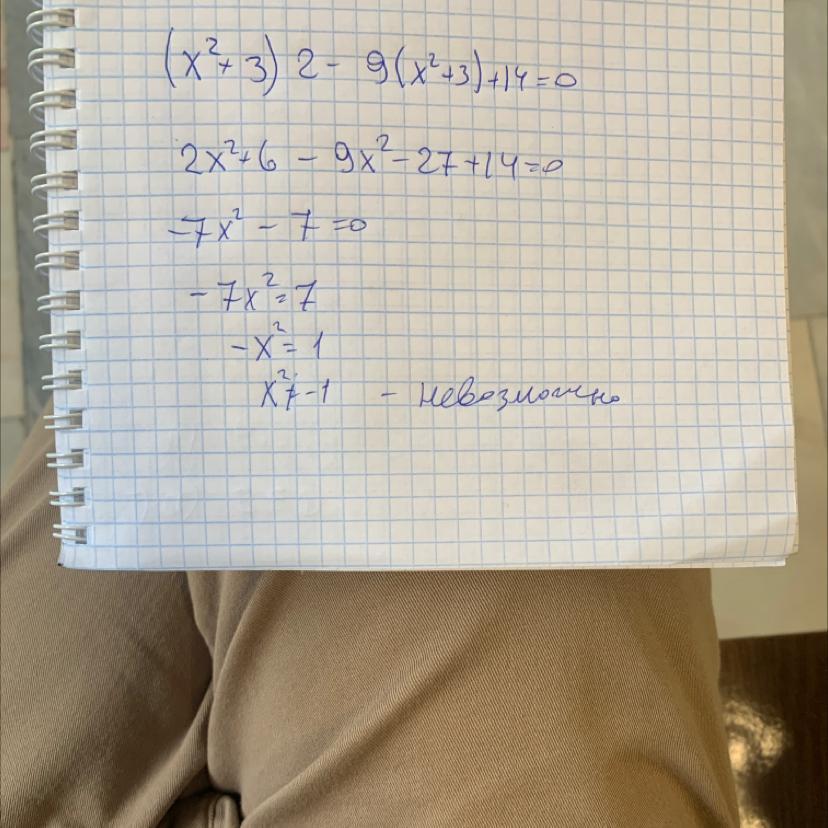 (x²+3)2-9(x²+3)+14=0
2x²+6-9x²-27+14=0
-7x²-7=0
-7x²=7
-x²=1
x²=-1 - невозможно